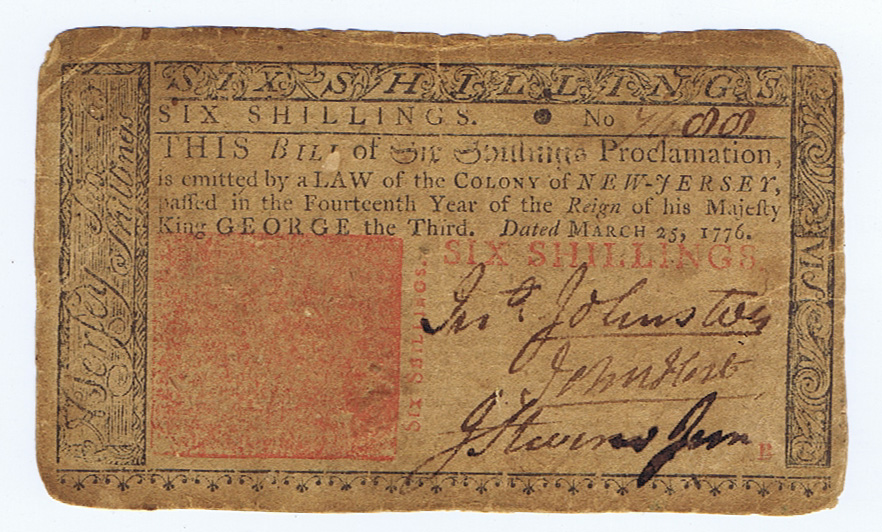 SIX SHILLINGS
SIX SHILLINGS. No 7488
THIS BILL of Six Shillings Proclamation,
is emitted by a LAW of the COLONY of NEW-JERSEY,
passed in the Fourteenth Year of the Reign of his Majesty
King GEORGE the Third. Dated MARCH 25, 1776.
SIX SHILLINGS.
SIX SHILLINGS.
Jno. Johnston
John Hart
J Stevens Jun
B
Jersey Shillings
SIX